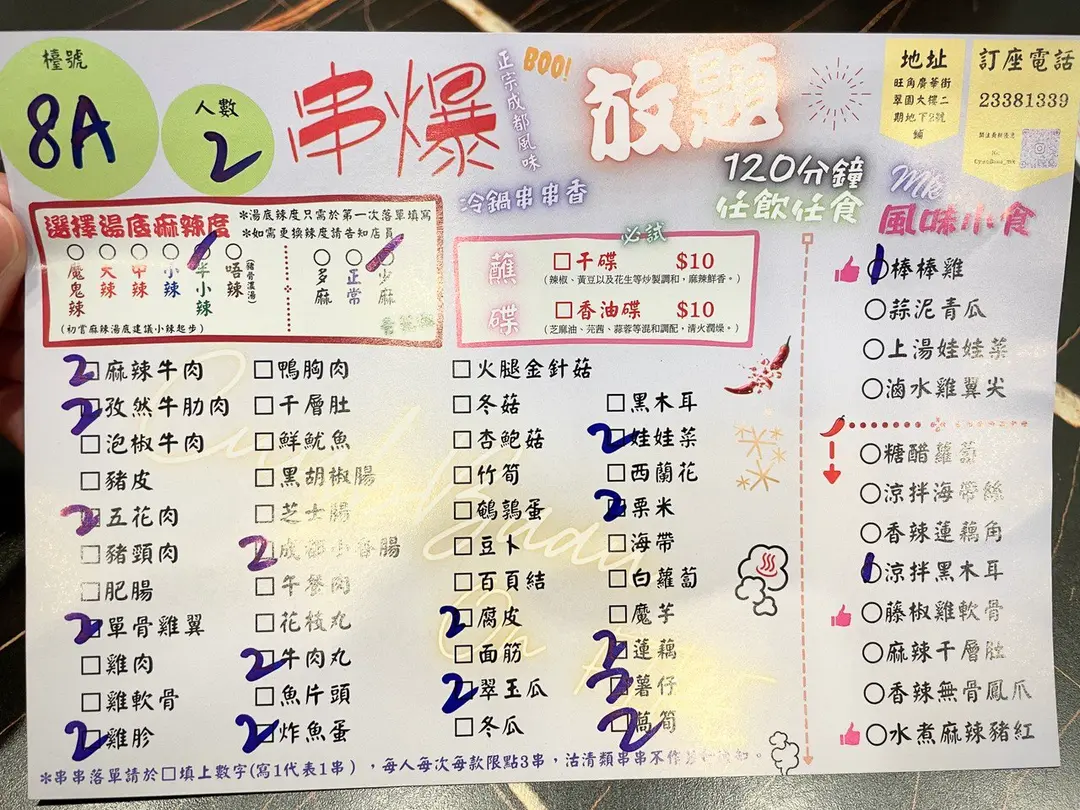 檯號
8A
人數
2
串爆
正宗成都風味
BOO!
放題
冷鍋串串香
120分鐘
任飲任食
地址
旺角廣華街
翠園大樓二
期地下2號
舖
訂座電話
23381339
選擇湯底麻辣度
*湯底辣度只需於第一次落單填寫
*如需更換辣度請告知店員
魔鬼辣
大辣
中辣
小辣
半小辣
唔辣
(豬骨濃湯)
多麻
正常
少麻
(初嘗麻辣湯底建議小辣起步)
必試
蘸碟
干碟 $10
(辣椒、黃豆以及花生等炒製調和，麻辣鮮香。)
香油碟 $10
(芝麻油、芫茜、蒜蓉等混和調配，清火潤燥。)
2麻辣牛肉
2孜然牛肋肉
泡椒牛肉
豬皮
2五花肉
豬頸肉
肥腸
2單骨雞翼
雞肉
雞軟骨
2雞胗
鴨胸肉
千層肚
鮮魷魚
黑胡椒腸
芝士腸
2成都小香腸
午餐肉
花枝丸
2牛肉丸
魚片頭
2炸魚蛋
火腿金針菇
冬菇
杏鮑菇
竹筍
鵪鶉蛋
豆卜
百頁結
2腐皮
面筋
2翠玉瓜
冬瓜
黑木耳
2娃娃菜
西蘭花
2粟米
海帶
白蘿蔔
魔芋
2蓮藕
2薯仔
2萵筍
Mk
風味小食
1棒棒雞
蒜泥青瓜
上湯娃娃菜
滷水雞翼尖
糖醋蘿蔔
涼拌海帶絲
香辣蓮藕角
1涼拌黑木耳
藤椒雞軟骨
麻辣千層肚
香辣無骨鳳爪
水煮麻辣豬紅
*串串落單請於□填上數字(寫1代表1串)，每人每次每款限點3串，沽清類串串不作